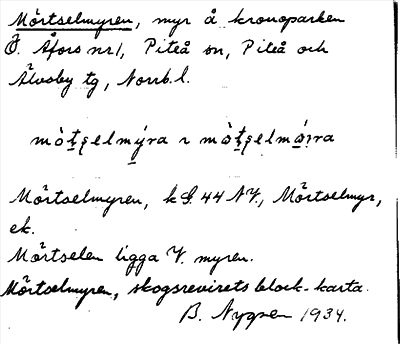 Mörtselmyren, myr å kronoparken
Ö. Åfors nr 1, Piteå sn, Piteå och
Älvsby tg, Norrb. l.
Mörtselmyren, k S. 44 NV., Mörtselmyr,
ek.
Mörtselen ligga V. myren.
Mörtselmyren, skogsrevirets block-karta.
B. Nygren 1934.